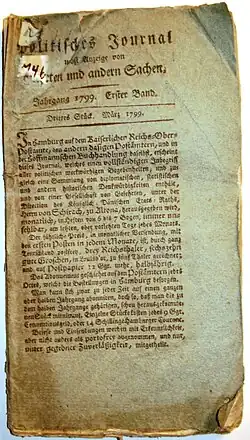 2
746
Politisches Journal
nebst Anzeige von
gelehrten und andern Sachen.
Jahrgang 1799. Erster Band.
Drittes Stück. März 1799.
In Hamburg auf dem Kaiserlichen Reichs-Ober-
Postamte, den andern dasigen Postämtern, und in
der Hoffmannschen Buchhandlung daselbst, erscheint
dieß Journal, welches einen vollständigen Inbegriff
aller politischen merkwürdigen Begebenheiten, und zu-
gleich eine Sammlung von diplomatischen, statistischen
und andern historischen Denkwürdigkeiten enthält,
und von einer Gesellschaft von Gelehrten, unter der
Direction des Königlich Dänischen Etats Raths,
Herrn von Schirach, zu Altona, herausgegeben wird,
monatlich, in Heften von 6 bis 7 Bogen, immer un-
fehlbar, am letzten, oder vorletzten Tage jedes Monats.
Der jährliche Preis, in monatlicher Versendung, mit
den ersten Posten in jedem Monate, ist, durch ganz
Teutschland postfrey, drey Reichsthaler, sechszehn
gute Groschen, in Louisd'or, zu fünf Thaler gerechnet;
und auf Postpapier 12 Ggr. mehr, halbjährig.
Das Abonnement geschiehet auf dem Postämtern jedes
Ortes, welche die Bestellungen in Hamburg besorgen.
Man kann sich zwar zu jeder Zeit auf einen ganzen
oder halben Jahrgang abonniren, doch so, daß man die zu
dem halben Jahrgange gehörigen, schon herausgekomme-
nen Stücke mitnimmt. Einzelne Stücke kosten jedes 9 Ggr.
Conventionsgeld, oder 14 Schillinge Hamburger Courant.
Briefe und Einsendungen werden mit Erkenntlichkeit,
aber nicht anders als portofrey angenommen, und nur,
unter gegebener Zuverläßigkeit, mitgetheilt.